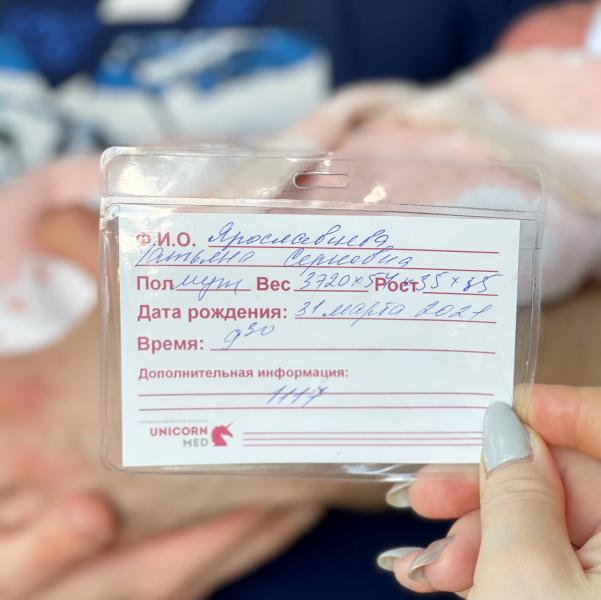 Ф.И.О. Ярославцева
Татьяна Сергеевна
Пол муж Вес 3720 × 54 × Рост 35 × 35
Дата рождения: 31 марта 2021
Время: 9 30
Дополнительная информация:
1117
UNICORN
MED